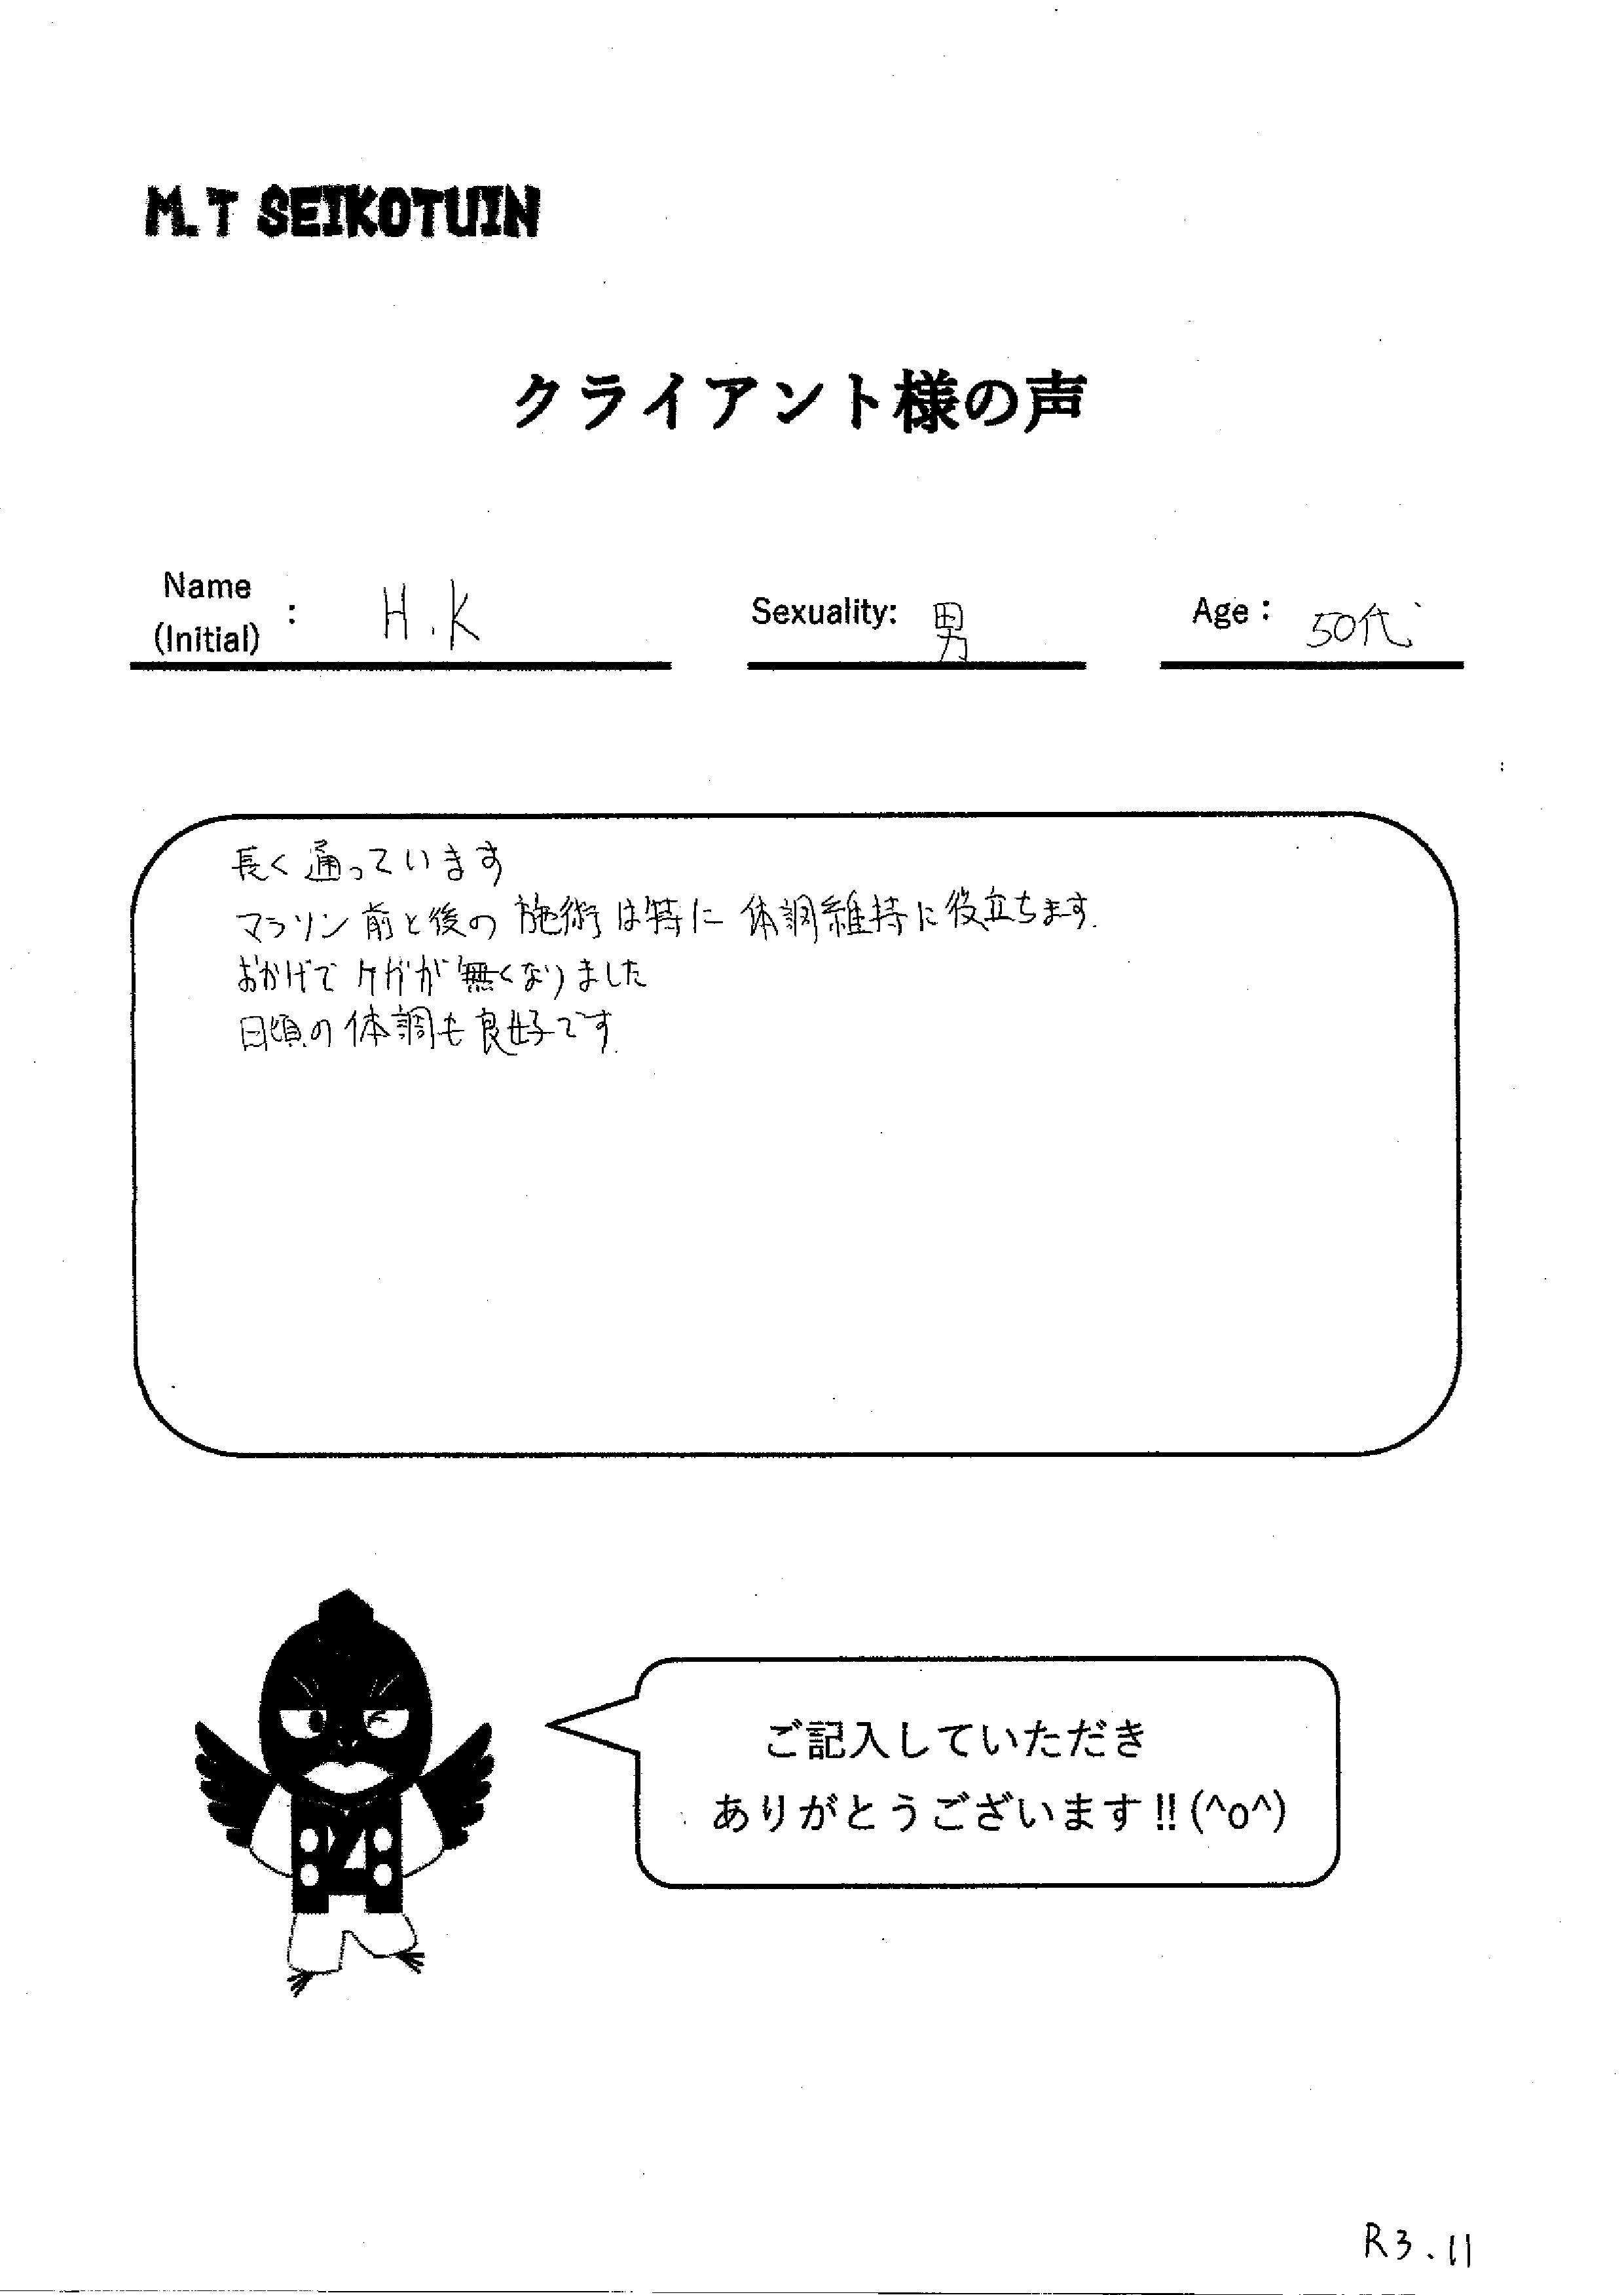 M.T SEIKOTUIN
クライアント様の声
Name
(Initial) : H.K
Sexuality: 男
Age : 50代
長く通っています
マラソン前と後の施術は特に体調維持に役立ちます.
おかげでケガが無くなりました
日頃の体調も良好です.
ご記入していただき
ありがとうございます!!(^o^)
R3.11